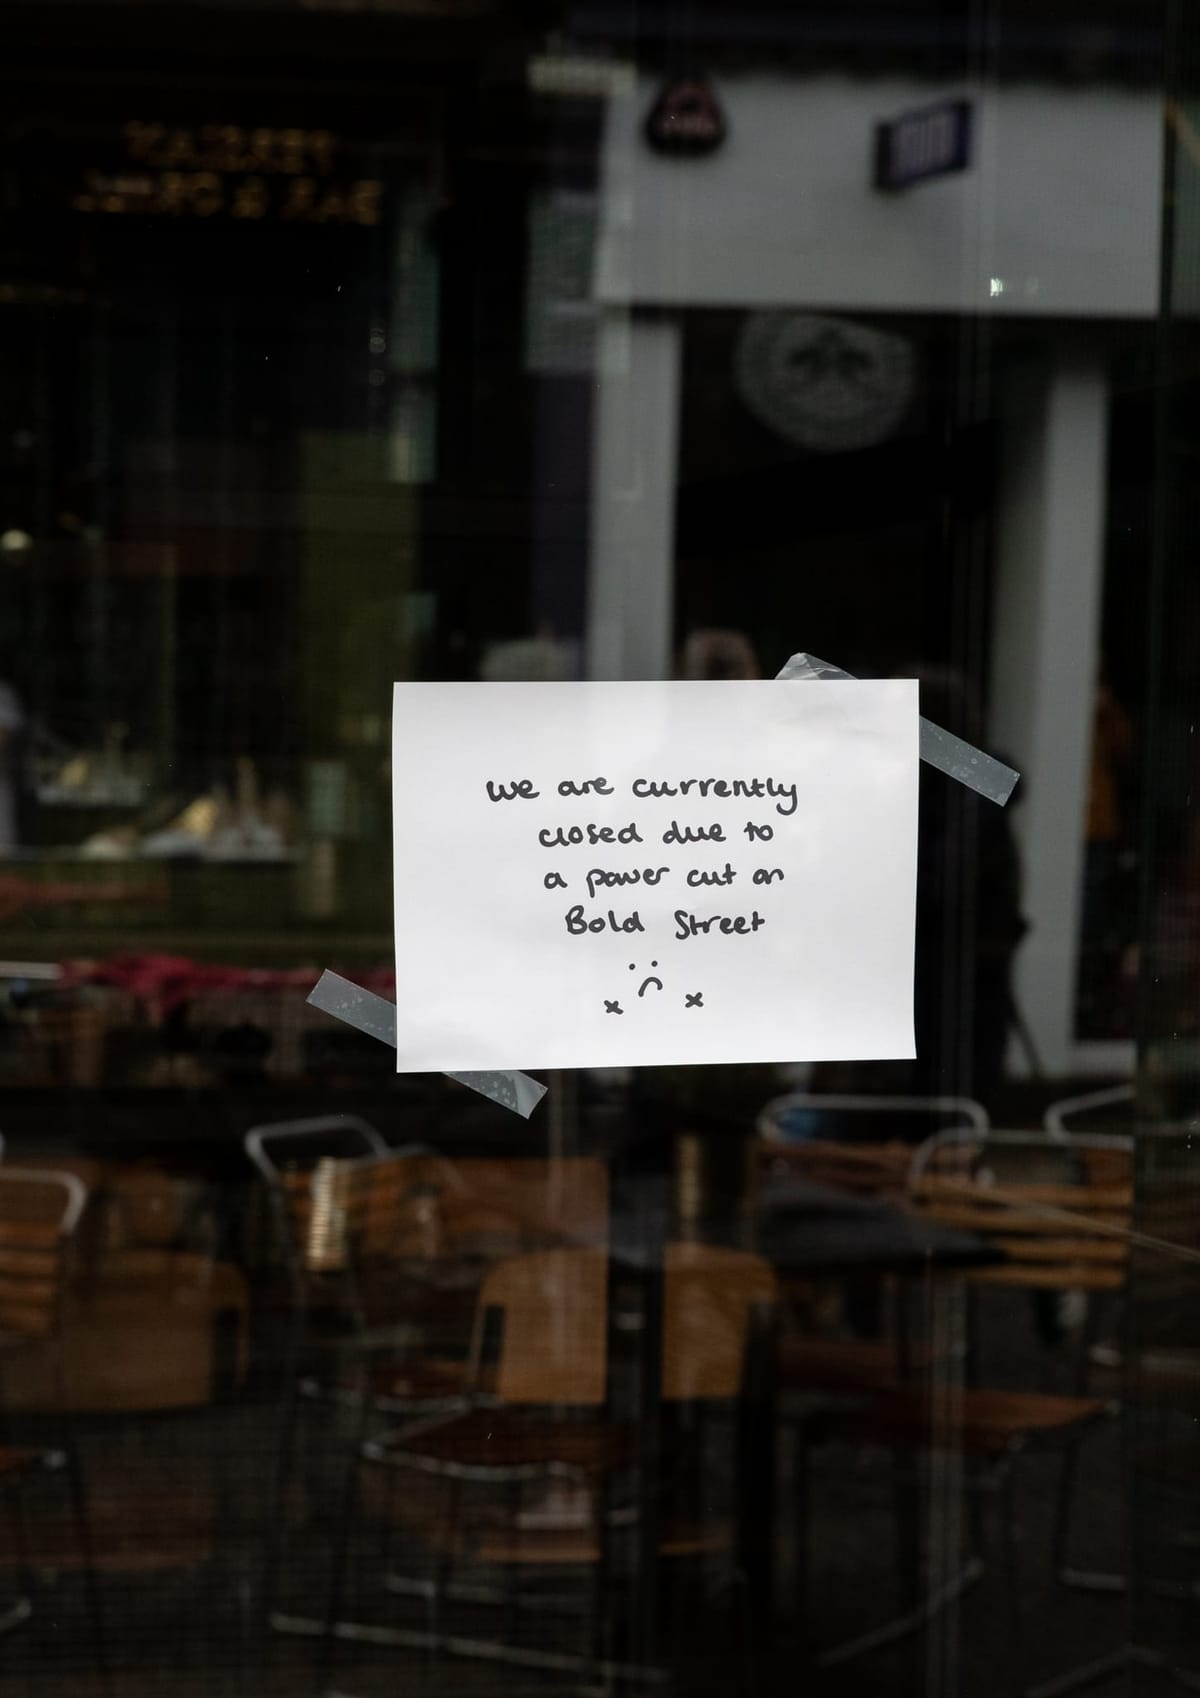 we are currently
closed due to
a power cut on
Bold Street
:(
x x